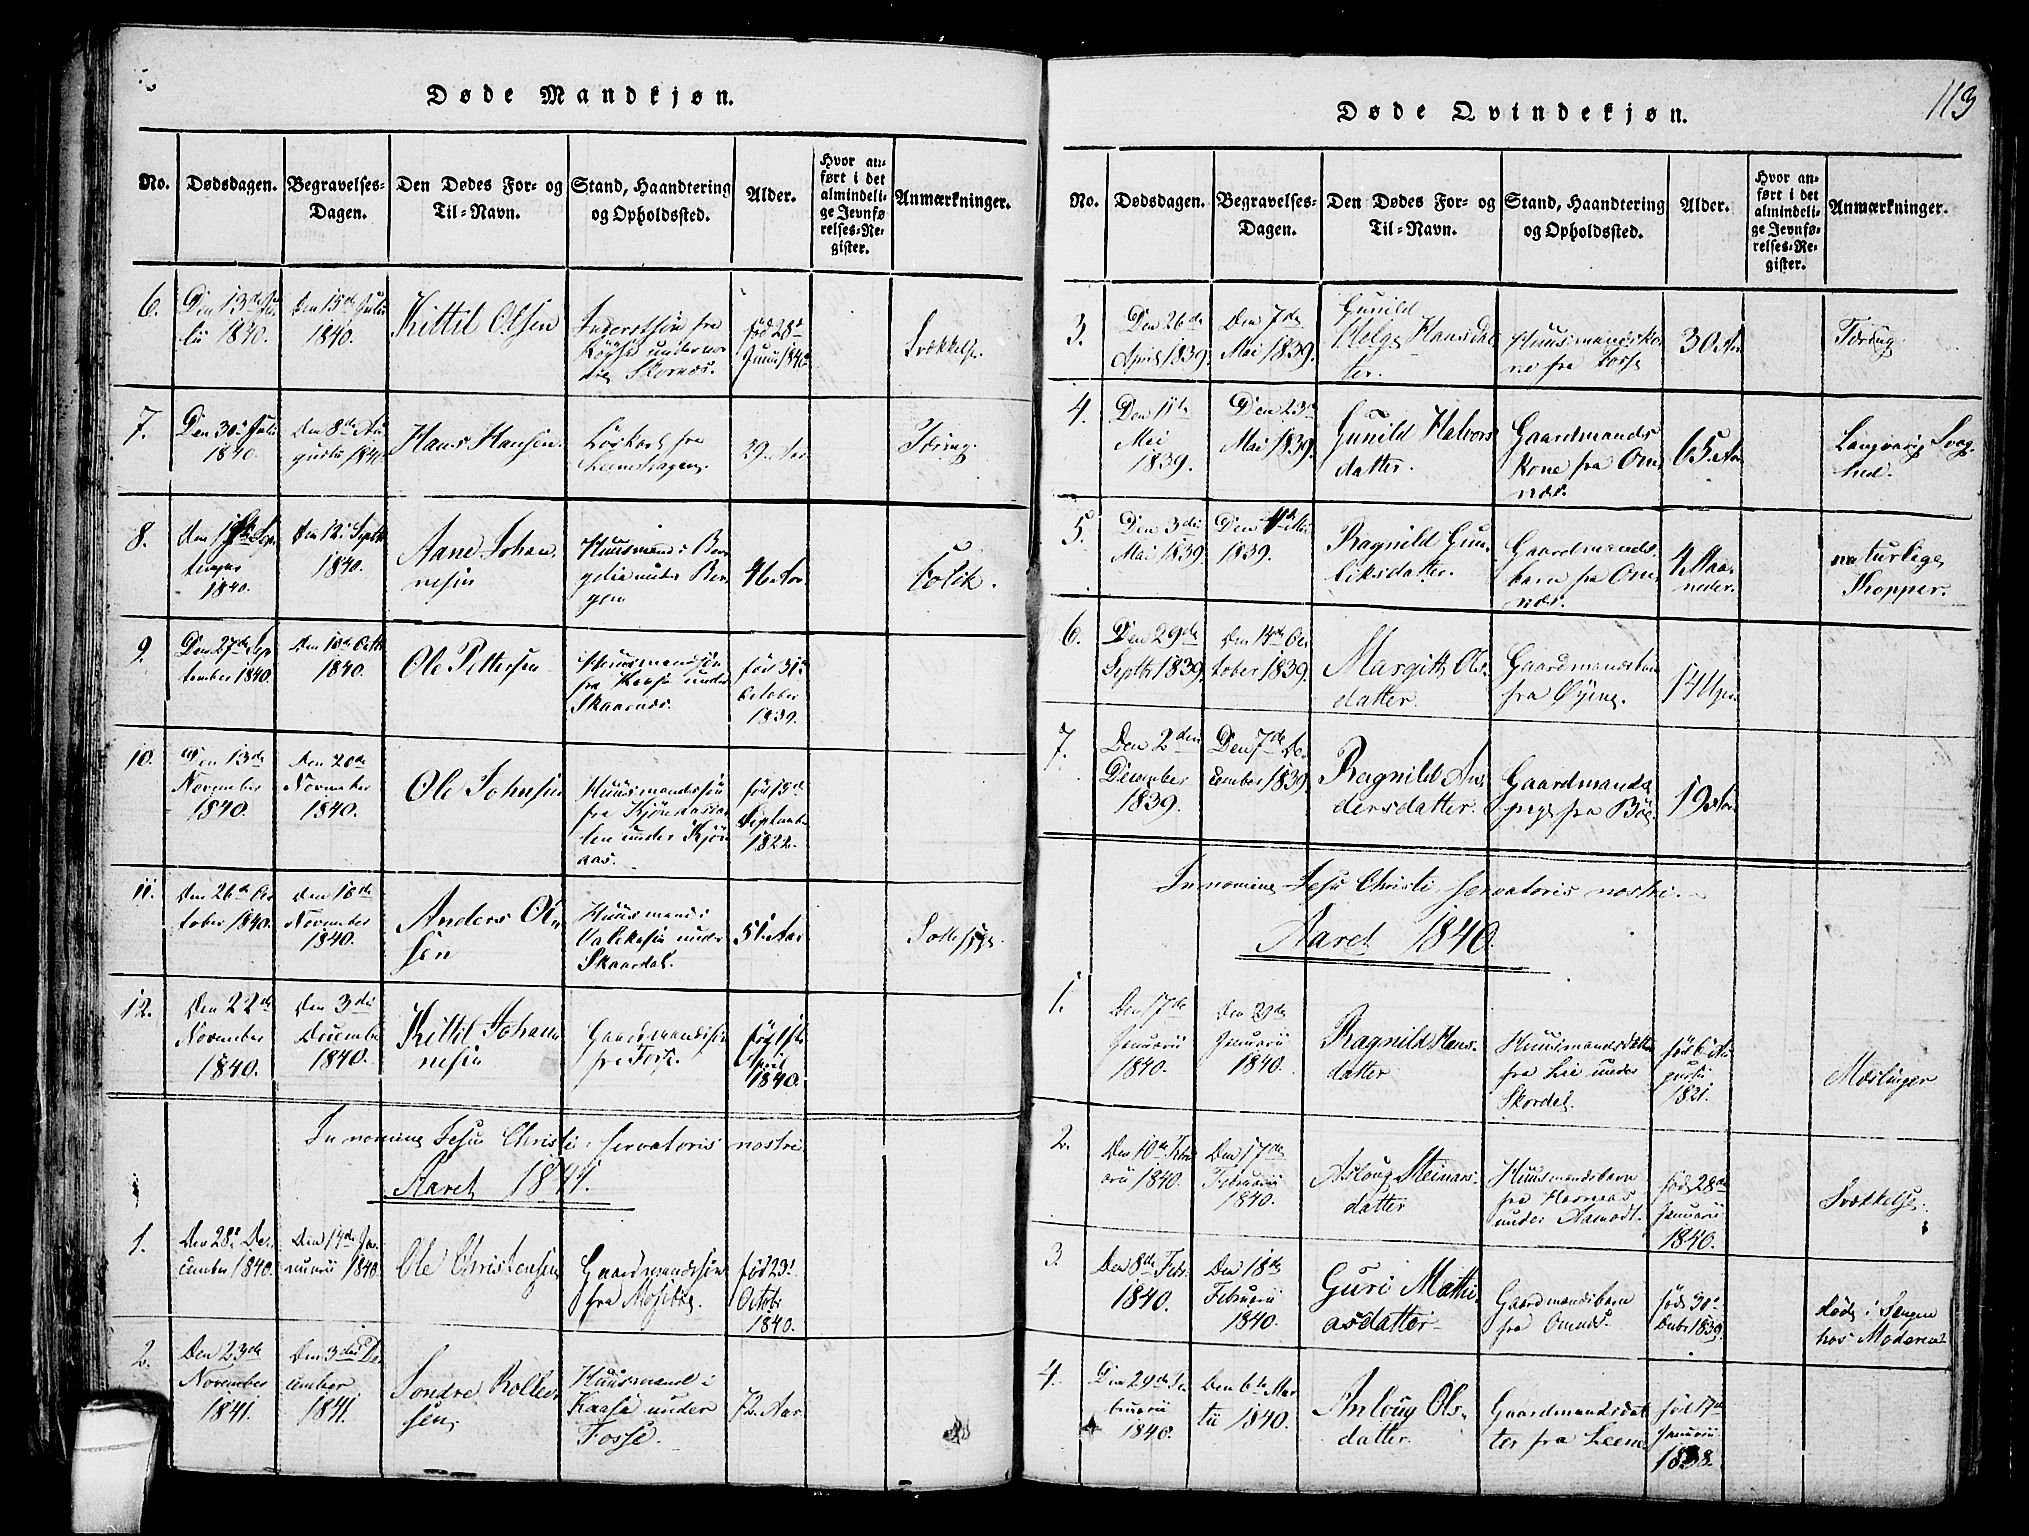 Døde Mandkjøn.
No. Dødsdagen. Begravelses-Dagen. Den Dødes For- og Til-Navn. Stand, Haandtering og Opholdssted. Alder. Hvor anført i det almindelige Jevnførelses-Register. Anmærkninger.
6. Den 13de Julii 1840. Den 15de Julii 1840. Kittil Olsen fra under Skornes. fød 28de Junii 1840 Svækkelse.
7. Den 30te Julii 1840. Den 8de Augusti 1840 Hans Hansen. fra Leenshagen. 29 Aar Tæring
8. den September 1840. Den 12te Septbr 1840. Aane Johannesen Huusmand i under Bergen 46 Aar Colik.
9. Den 27de September 1840. Den 10de Octbr 1840. Ole Pettersen Huusmandssøn fra Kaasa under Skaarnes. fød 31te October 1839.
10. Den 13de November 1840. Den 20de November 1840. Ole Johnsen Huusmandssøn fra under Kjønaas. fød 15de September 1822.
11. Den 26de October 1840. Den 10de November 1840. Anders Olsen Huusmand i under Skaardal. 51 Aar
12. Den 22de November 1840. Den 3die December 1840. Kittil Johannesen Gaardmandssøn fra Fosse. fød 1ste April 1840.
In nomine Jesu Christi servatoris nostri
Aaret 1841.
1. Den 28de December 1840. Den 14de Januarii 1840. Ole Christensen Gaardmandssøn fra Mosebø. fød 23de Octobr 1840.
2. Den 23de November 1841. Den 3die December 1841. Sondre Rollefsen Huusmand i Kaasa under Fosse. 72 Aar
113
Døde Qvindekjøn.
No. Dødsdagen. Begravelses-Dagen. Den Dødes For- og Til-Navn. Stand, Haandtering og Opholdssted. Alder. Hvor anført i det almindelige Jevnførelses-Register. Anmærkninger.
3. Den 26de April 1839. Den 7de Mai 1839. Gunild Helge Hansdatter. Huusmandskone fra Fosse 30 Aar Tæring
4. Den 11te Mai 1839. Den 23de Mai 1839. Gunild Halvorsdatter. Gaardmands Kone fra Omnæs. 65 Aar Langvarig Svaghed.
5. Den 3die Mai 1839. Den 11te Mai 1839. Ragnild Gunliksdatter. Gaardmandsbarn fra Omnæs. 4 Maaneder. naturlige Kopper.
6. Den 29de Septbr 1839. Den 14de October 1839. Margith Olsdatter. fra Øyene. 14 Uger
7. Den 2den December 1839. Den 7de December 1839. Ragnild Andersdatter. Gaardmands pige fra Bøe. 19 Aar
In nomine Jesu Christi servatoris nostri.
Aaret 1840.
1. Den 17de Januarii 1840. Den 21de Januarii 1840. Ragnild Hansdatter Huusmandsdatter fra Lie under Skordal. fød 6te Augustii 1821. Mæslinger
2. Den 10de Februarii 1840. Den 17de Februarii 1840. Aslaug Steinarsdatter Huusmandsbarn fra under Aamodt. fød 28de Januarii 1840. Svækkelse.
3. Den 8de Febr. 1840. Den 18de Februarii 1840. Guri Mathiasdatter Gaardmandsbarn fra Omnæs. fød 30te Decbr 1839. døde i Sengen hos Moderen
4. Den 29de Februarii 1840. Den 6te Martii 1840. Anlaug Olsdatter. Gaardmandsdatter fra Leene. fød 17de Januarii 1838.